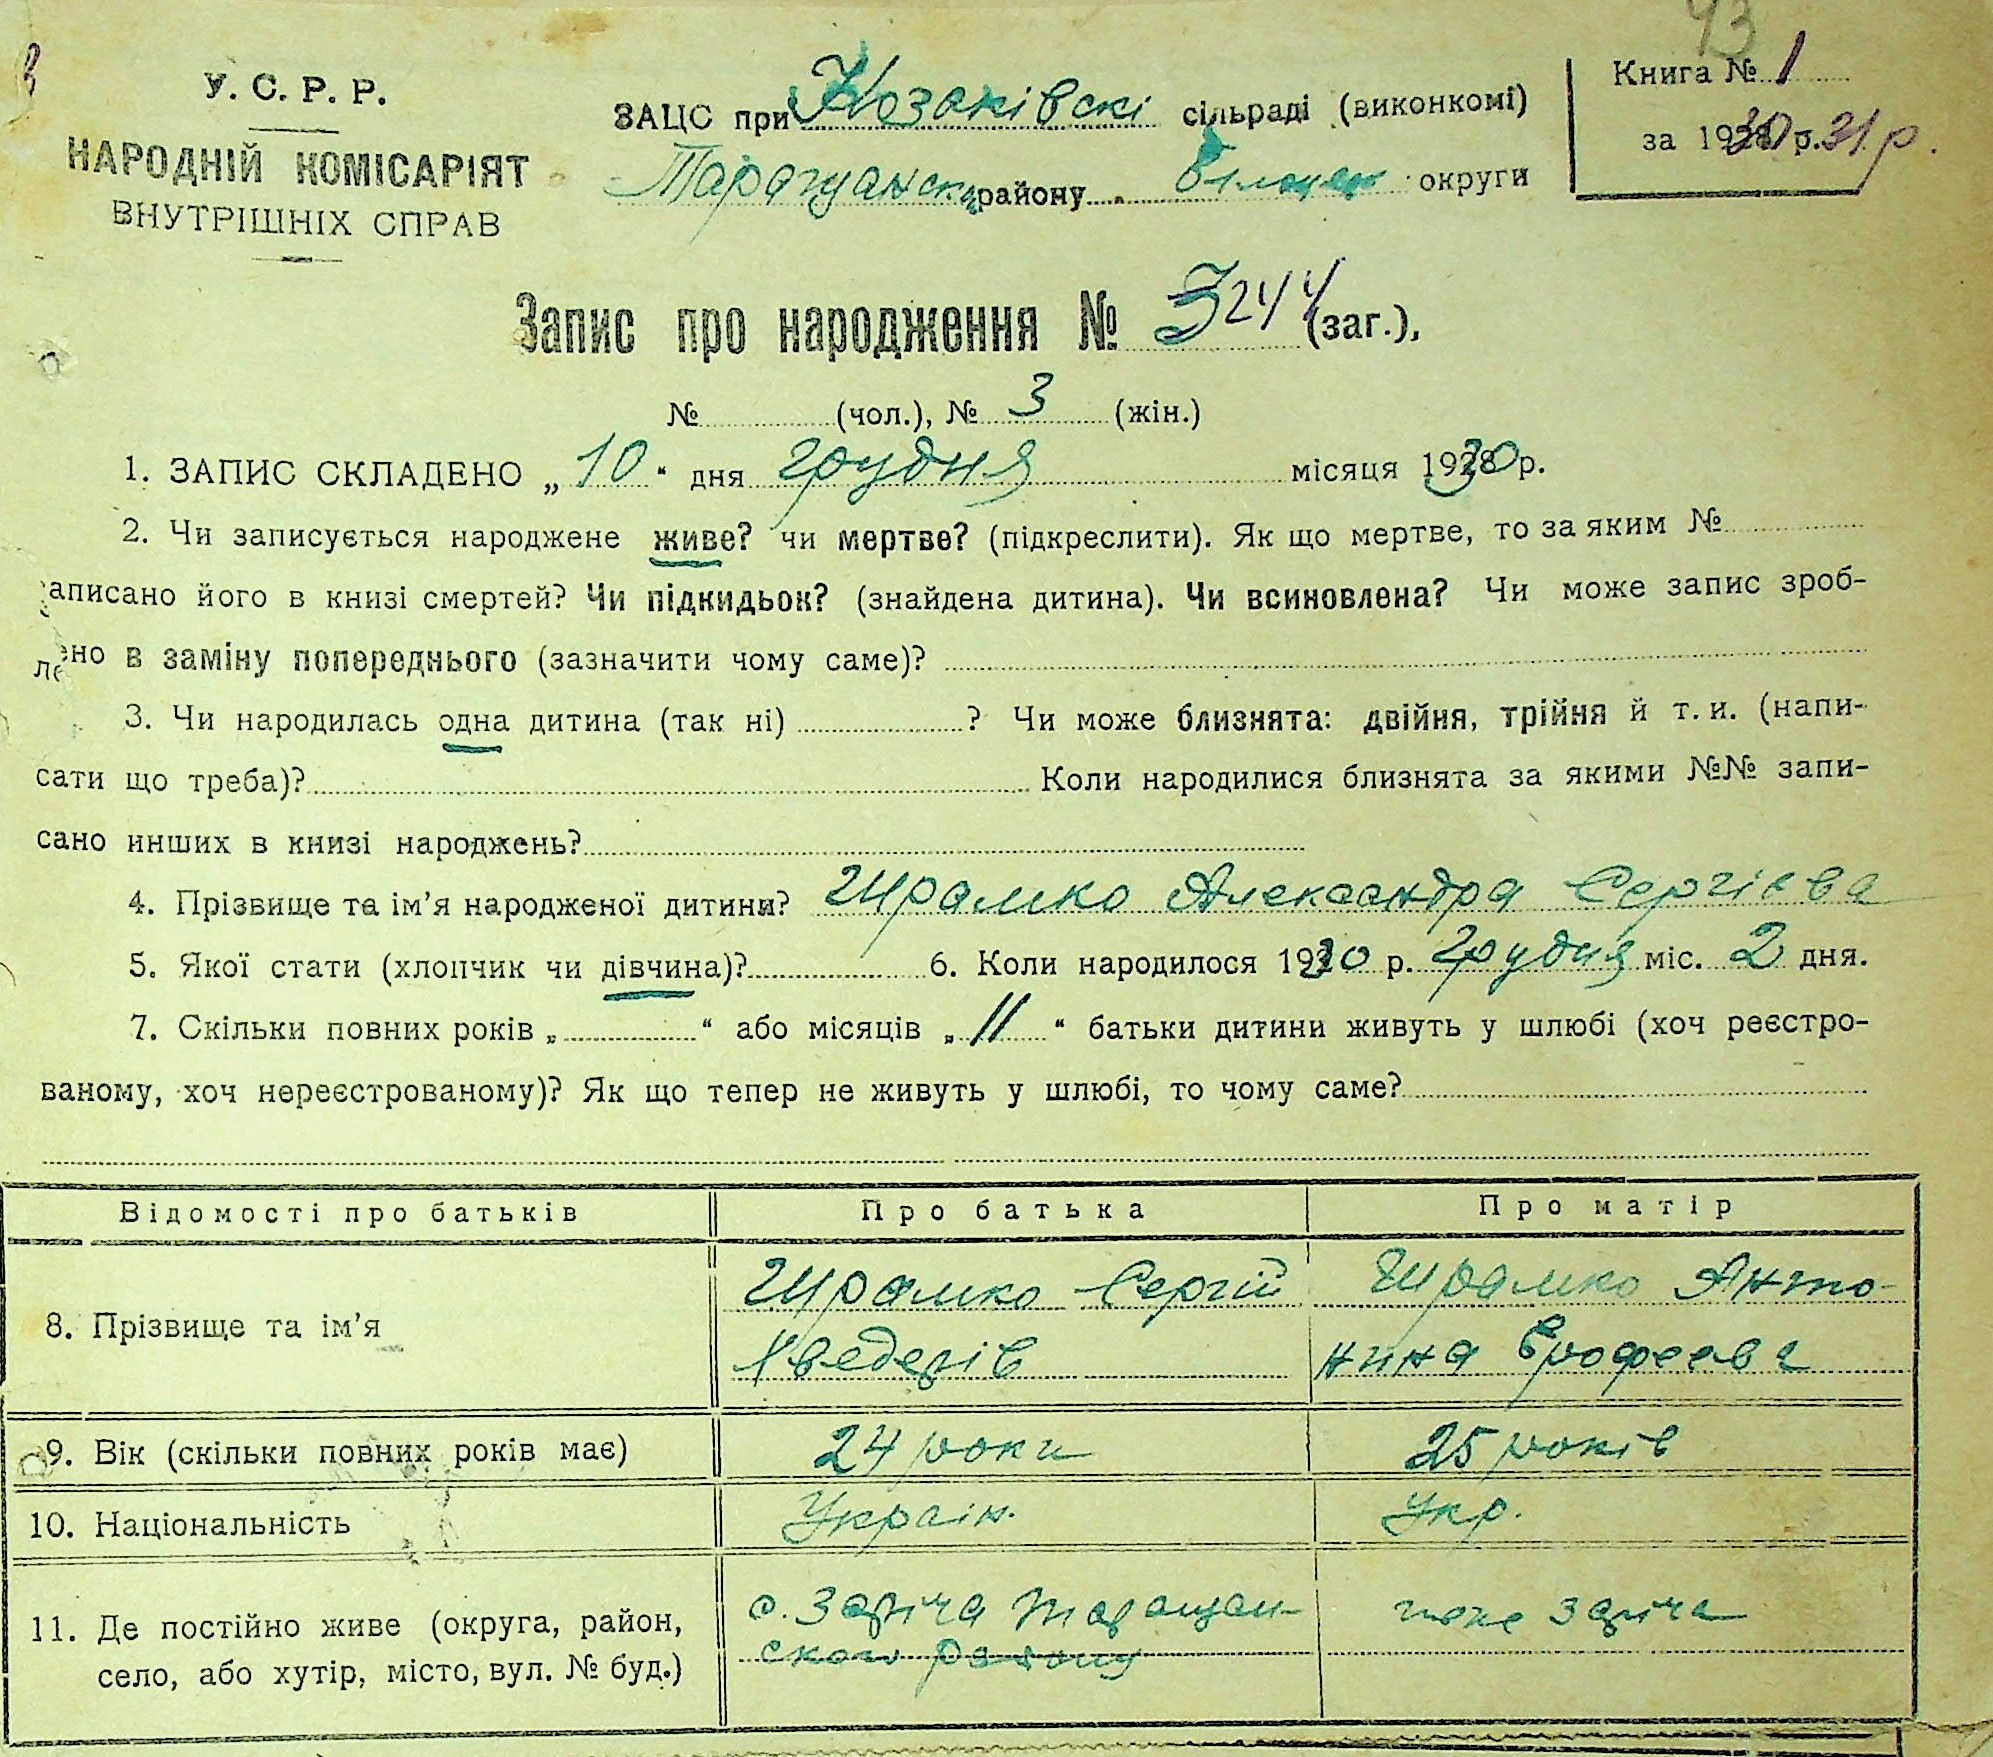 43
У. С. Р. Р.
НАРОДНІЙ КОМІСАРІЯТ
ВНУТРІШНІХ СПРАВ
ЗАЦС при Козаківскі сільраді (виконкомі)
району округи
Книга № 1
за 1930 р. 31 р.
Запис про народження № 3244 (заг.),
№ (чол.), № 3 (жін.)
1. ЗАПИС СКЛАДЕНО „10“ дня грудня місяця 1930 р.
2. Чи записується народжене живе? чи мертве? (підкреслити). Як що мертве, то за яким №
записано його в книзі смертей? Чи підкидьок? (знайдена дитина). Чи всиновлена? Чи може запис зроб-
лено в заміну попереднього (зазначити чому саме)?
3. Чи народилась одна дитина (так ні) ? Чи може близнята: двійня, трійня й т. и. (напи-
сати що треба)? Коли народилися близнята за якими №№ запи-
сано инших в книзі народжень?
4. Прізвище та ім’я народженої дитини? Шрамко Александра Сергієва
5. Якої стати (хлопчик чи дівчина)? 6. Коли народилося 1930 р. грудня міс. 2 дня.
7. Скільки повних років „ “ або місяців „11“ батьки дитини живуть у шлюбі (хоч реєстро-
ваному, хоч нереєстрованому)? Як що тепер не живуть у шлюбі, то чому саме?
Відомості про батьків Про батька Про матір
8. Прізвище та ім’я Шрамко Сергій Шрамко Анто-
нина Єрофеєва
9. Вік (скільки повних років має) 24 роки 25 років
10. Національність Україн. Укр.
11. Де постійно живе (округа, район,
село, або хутір, місто, вул. № буд.)
с. Заріча Таращан-
ского району
теже Заріча